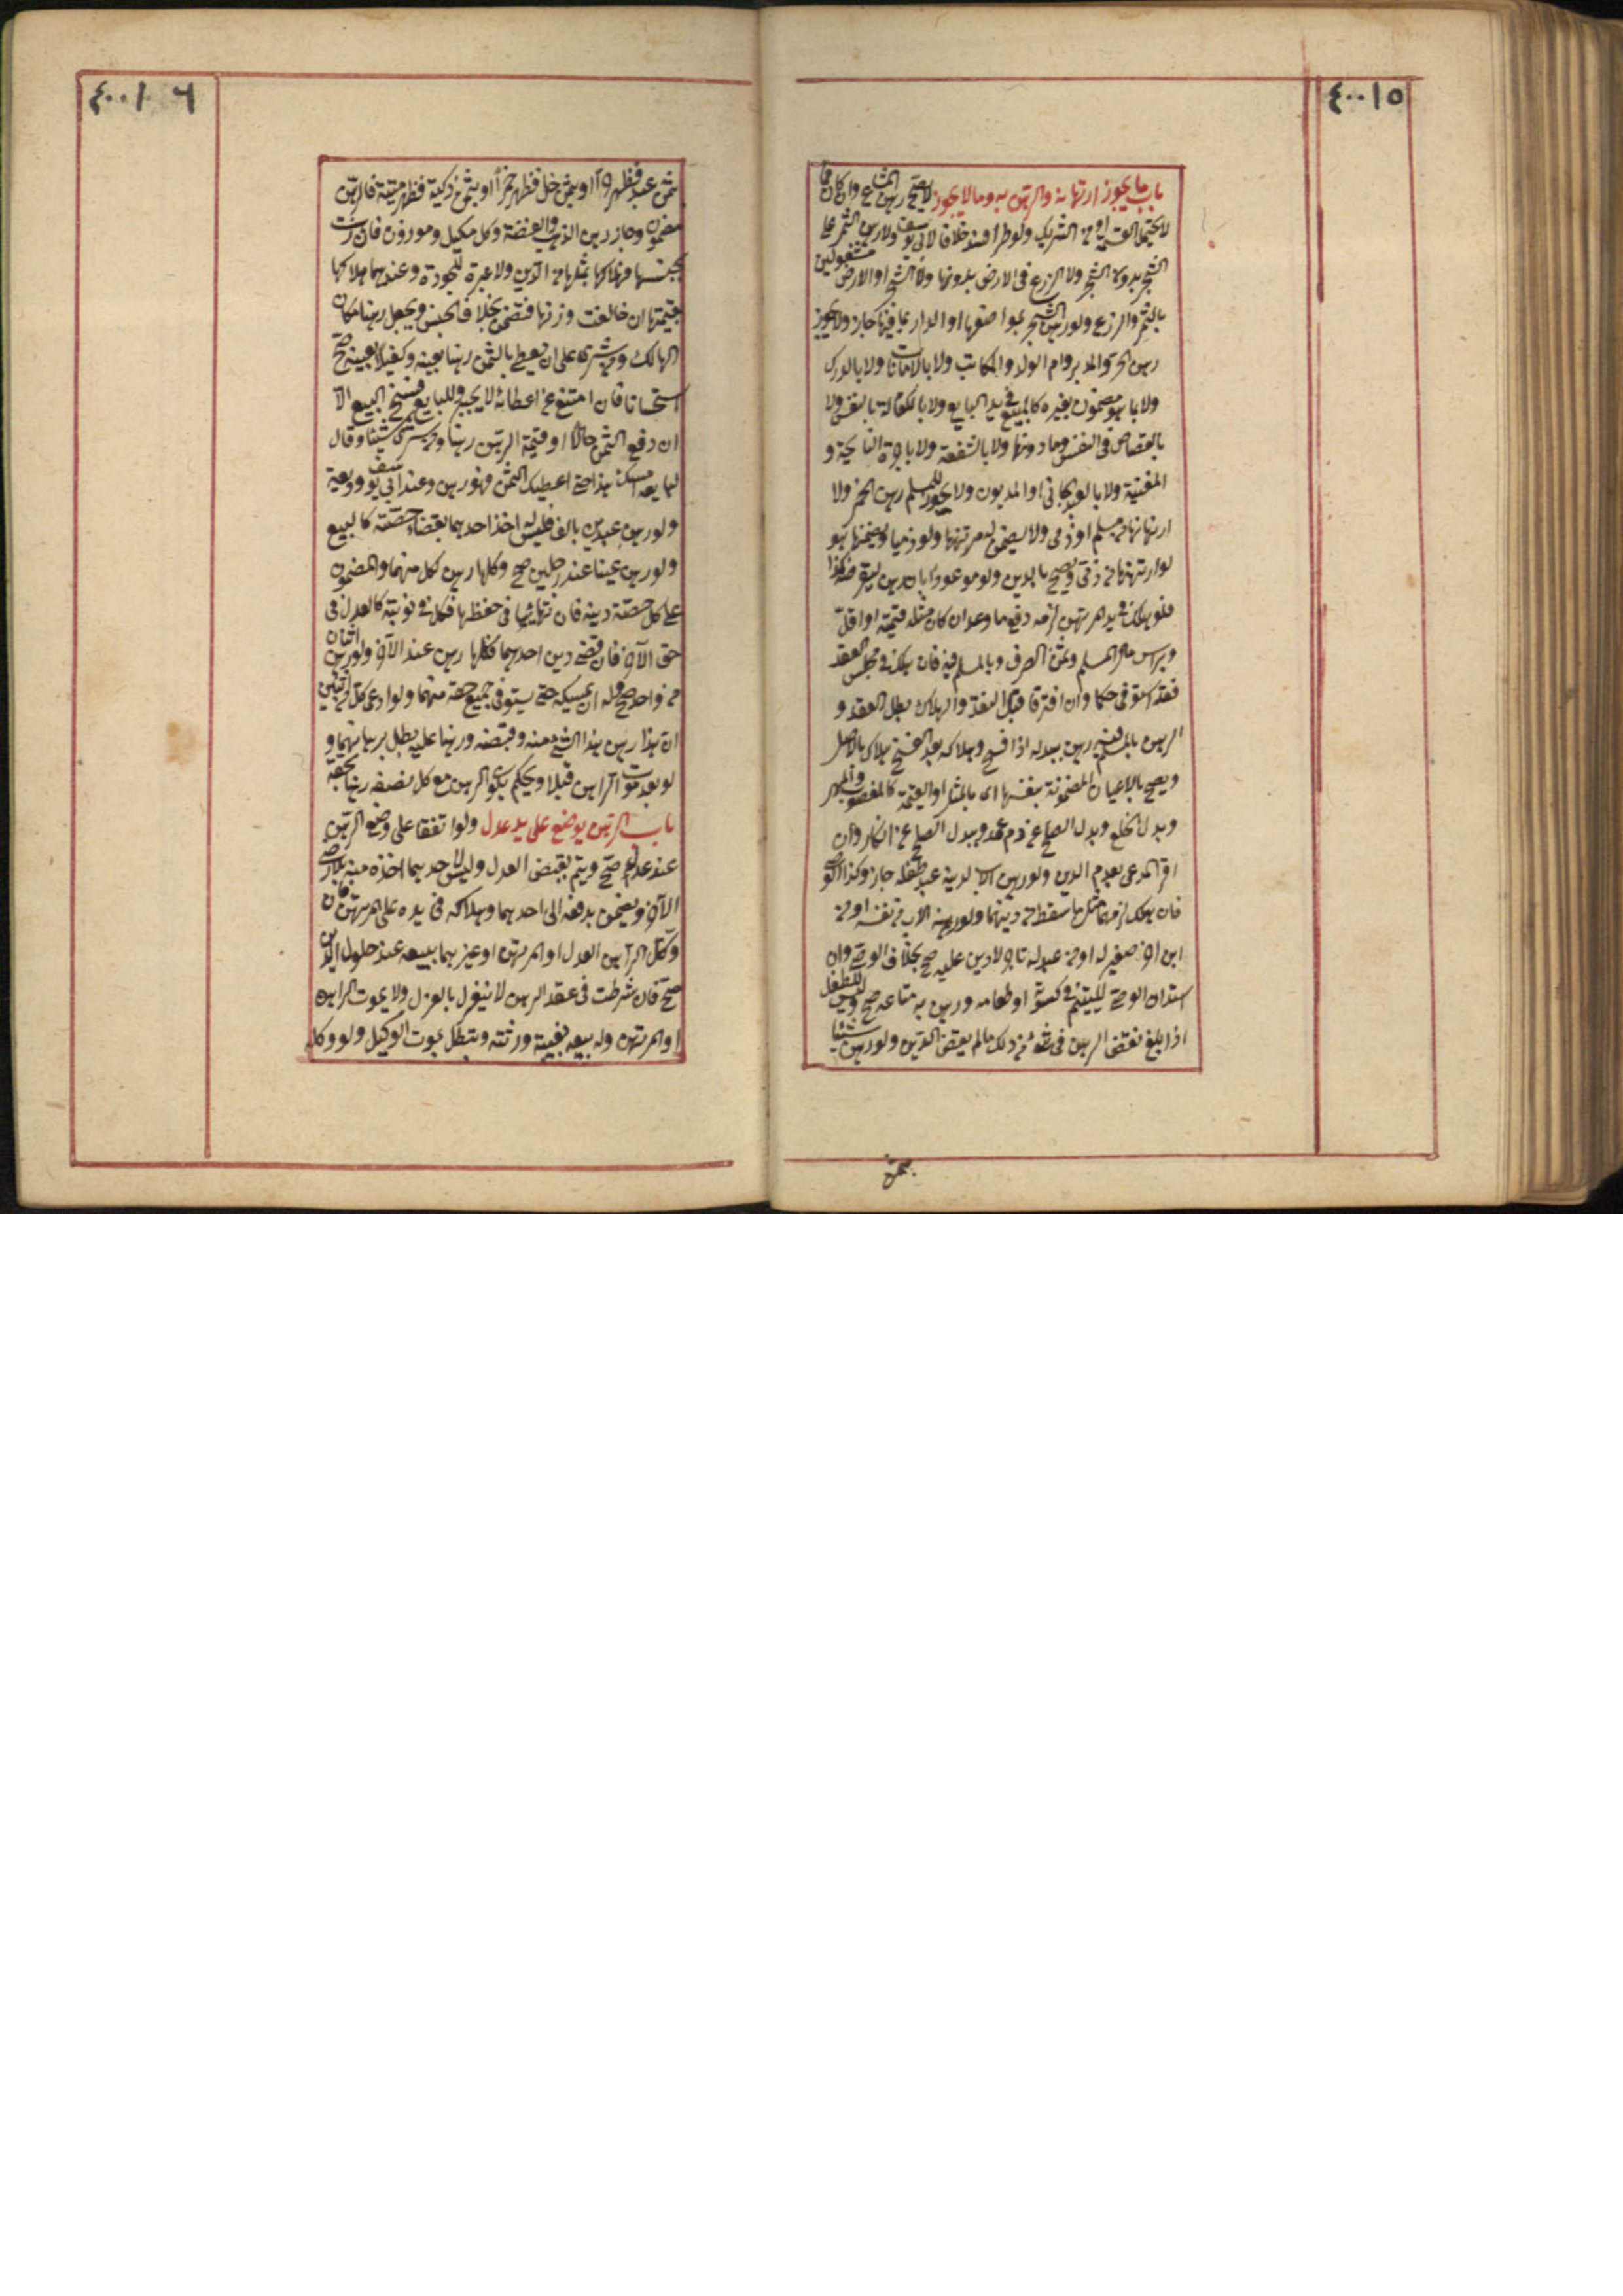 ٤٠٠١٥
باب ما يجوز ارتهانه والرهن به وما لا يجوز لا يصح رهن المشاع وان كان مما
لا يحتمل القسمة او من الشريك ولو طرأ فسد خلافا لابي يوسف ولا رهن الثمر على
الشجر بدون الشجر ولا الزرع في الارض بدونها ولا الشجر او الارض مشغولين
بالثمر والزرع ولو رهن الشجر بمواضعها او الدار بما فيها جاز ولا يجوز
رهن الحر والمدبر وام الولد والمكاتب ولا بالامانات ولا بالدرك
ولا بما هو مضمون بغيره كالمبيع في يد البايع ولا بالكفالة بالنفس ولا
بالقصاص في النفس وما دونها ولا بالشفعة ولا باجرة النايحة و
المغنية ولا بالعبد الجاني او المديون ولا يجوز للمسلم رهن الخمر ولا
ارتهانها من مسلم او ذمي ولا يضمن له مرتهنها ولو ذميا ويضمنها هو
لو ارتهنها من ذمي ويصح بالدين ولو موعودا بان رهن ليقرضه كذا
فلو هلك في يد المرتهن لزمه دفع ما وعد ان كان مثله قيمته او اقل
وبراس مال السلم وثمن الصرف وبالمسلم فيه فان هلك في مجلس العقد
فقد استوفى حكما وان افترقا قبل النقد والهلاك بطل العقد و
الرهن بالمسلم فيه رهن ببدله اذا فسخ وهلاكه بعد الفسخ هلاك بالاصل
ويصح بالاعيان المضمونة بنفسها اى بالمثل او القيمة كالمغصوب والمهر
وبدل الخلع وبدل الصلح عن دم عمد وببدل الصلح عن انكار وان
اقر المدعى بعدم الدين ولو رهن الاب لدينه عبد طفله جاز وكذا الوصي
فان هلك لزمهما مثل ما سقط من دينهما ولو رهنه الاب من نفسه او من
ابن آخر صغير له او من عبد له تاجر لا دين عليه صح بخلاف الوصي وان
استدان الوصي لليتيم في كسوته او طعامه ورهن به متاعه صح وليس للطفل
اذا بلغ نقض الرهن في شئ من ذلك ما لم يقض الدين ولو رهن شيئا
بثمن
٤٠٠١٦
بثمن عبد فظهر حرا او بثمن خل فظهر خمرا او بثمن ذكية فظهر ميتة فالرهن
مضمون وجاز رهن الذهب والفضة وكل مكيل وموزون فان رهنت
بجنسها فهلاكها بمثلها من الدين ولا عبرة للجودة وعندهما هلاكها
بقيمتها ان خالفت وزنها فتضمن بخلاف الجنس ويجعل رهنا مكان
الهالك ومن شرى على ان يعطى بالثمن رهنا بعينه وكفيلا بعينه صح
استحسانا فان امتنع عن اعطائه لا يجبر وللبايع فسخ البيع الا
ان دفع الثمن حالا او قيمة الرهن رهنا ومن شرى شيئا وقال
لبايعه امسك هذا حتى اعطيك الثمن فهو رهن وعند ابي يوسف وديعة
ولو رهن عبدين بالف فليس له اخذ احدهما بقضاء حصته كالبيع
ولو رهن عينا عند رجلين صح وكلها رهن لكل منهما والمضمون
على كل حصة دينه فان تهايئا في حفظها فكل في نوبته كالعدل في
حق الآخر فان قضى دين احدهما فكلها رهن عند الآخر ولو رهن اثنان
من واحد صح وله ان يمسكه حتى يستوفى جميع حقه منهما ولو ادعى كل من اثنين
ان هذا رهن هذا الشئ منه وقبضه ورهنا عليه بطل برهانهما و
لو بعد موت الراهن قبلا ويحكم بكون الرهن مع كل نصفه رهنا بحقه
باب الرهن يوضع على يد عدل ولو اتفقا على وضع الرهن
عند عدل صح ويتم بقبض العدل وليس لاحدهما اخذه منه بلا رضى
الآخر ويضمن بدفعه الى احدهما وهلاكه في يده على المرتهن فان
وكل الراهن العدل او المرتهن او غيرهما ببيعه عند حلول الدين
صح فان شرطت في عقد الرهن لا ينعزل بالعزل ولا بموت الراهن
او المرتهن وله بيعه بغيبة ورثته وتبطل بموت الوكيل ولو وكله